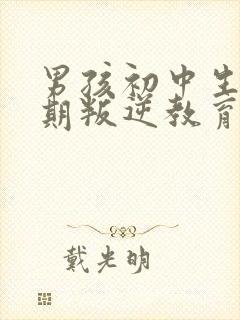 男孩初中生
期叛逆教育
戴光明